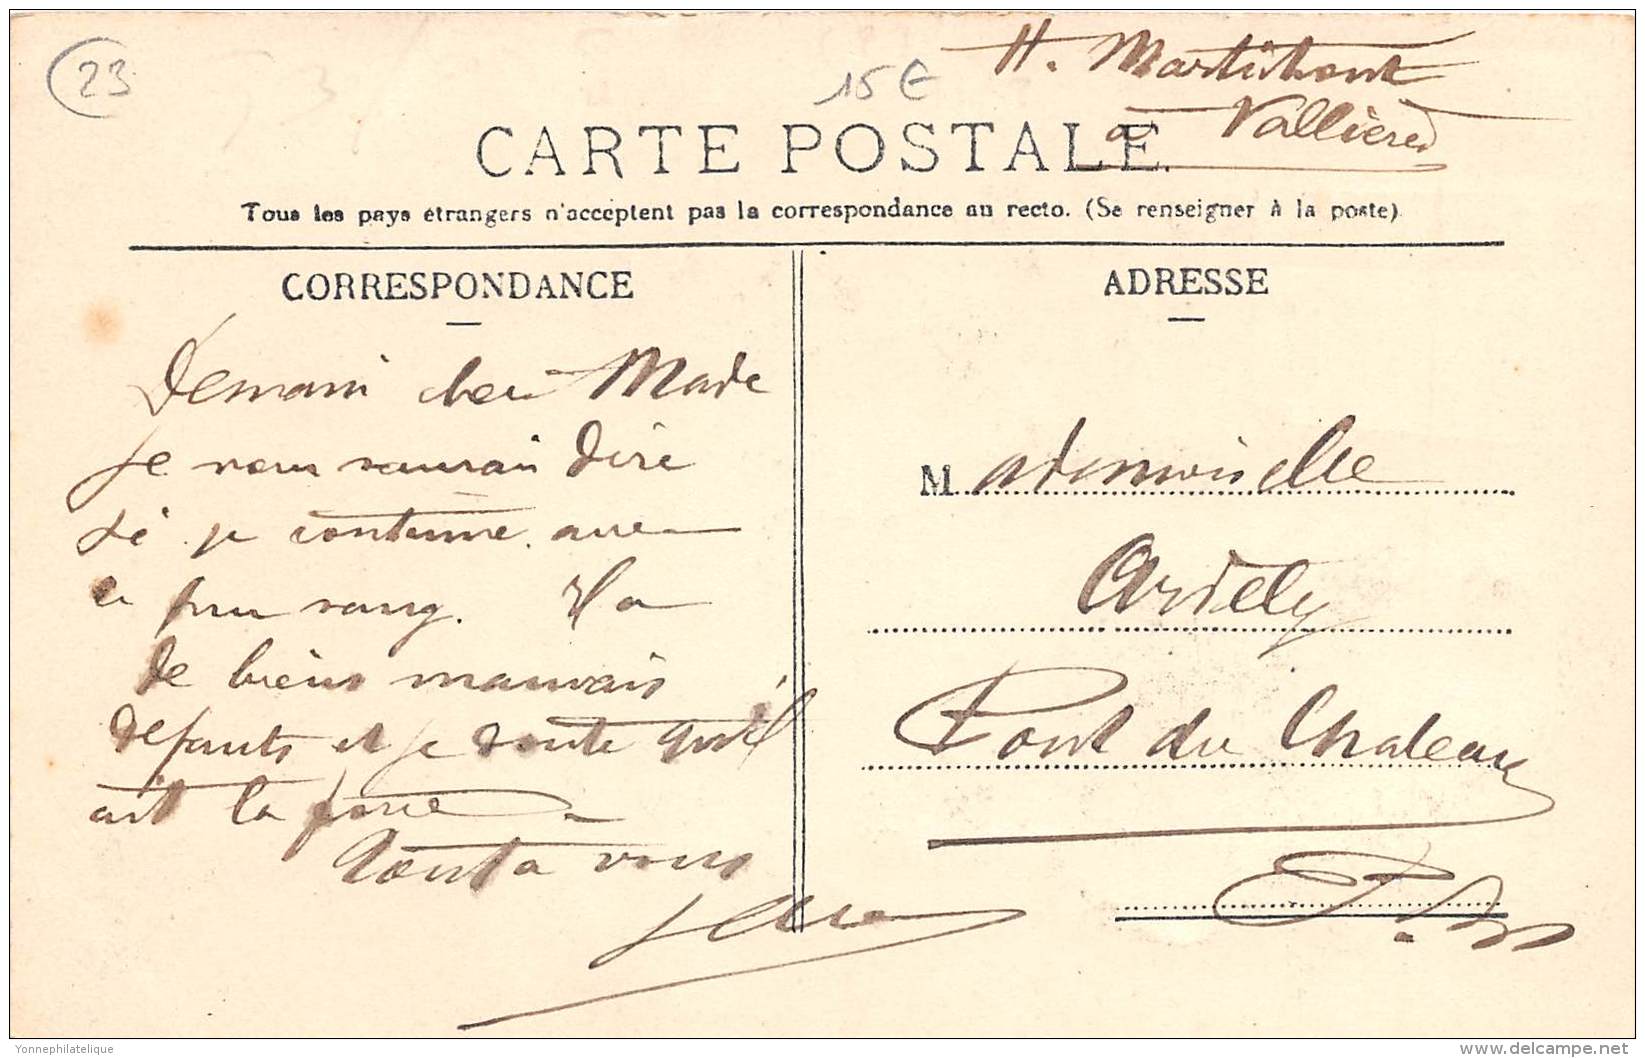 23
15 €
H. Martichont
à Vallières
CARTE POSTALE
Tous les pays étrangers n'acceptent pas la correspondance au recto. (Se renseigner à la poste)
CORRESPONDANCE
ADRESSE
Demain cher Made
je vous saurai dire
si je
le rang. Il a
de biens mauvais
defauts et je doute qu'il
ait la force
Tout a vous
Mademoiselle
Ardely
Pont du Chateau
P. D
Yonnephilatelique
www.delcampe.net